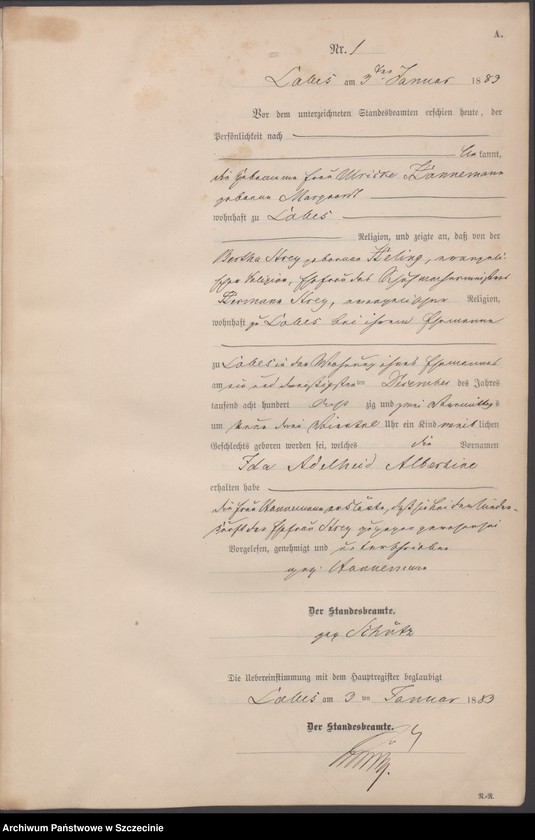 A.
Nr. 1
Labes am 3ten Januar 1883
Vor dem unterzeichneten Standesbeamten erschien heute, der
Persönlichkeit nach
bekannt,
die Hebamme Frau Ulricke Hannemann
geborene Marquardt
wohnhaft zu Labes
Religion, und zeigte an, daß von der
Bertha Strey geborenen Heling, evangeli-
scher Religion, Ehefrau des Schuhmachermeisters
Hermann Strey, evangelischer Religion,
wohnhaft zu Labes bei ihrem Ehemanne
zu Labes in der Wohnung ihres Ehemannes
am ein und dreißigsten ten Dezember des Jahres
tausend acht hundert acht zig und zwei Vormittags
um drei Viertel Uhr ein Kind weiblichen
Geschlechts geboren worden sei, welches die Vornamen
Ida Adelheid Albertine
erhalten habe
die Frau Hannemann erklärte, daß sie bei der Nieder-
kunft der Ehefrau Strey zugegen gewesen sei
Vorgelesen, genehmigt und unterschrieben
gez. Hannemann
Der Standesbeamte.
gez Schütz
Die Uebereinstimmung mit dem Hauptregister beglaubigt
Labes am 3 ten Januar 1883
Der Standesbeamte.
Schütz
R.-R.
Archiwum Państwowe w Szczecinie